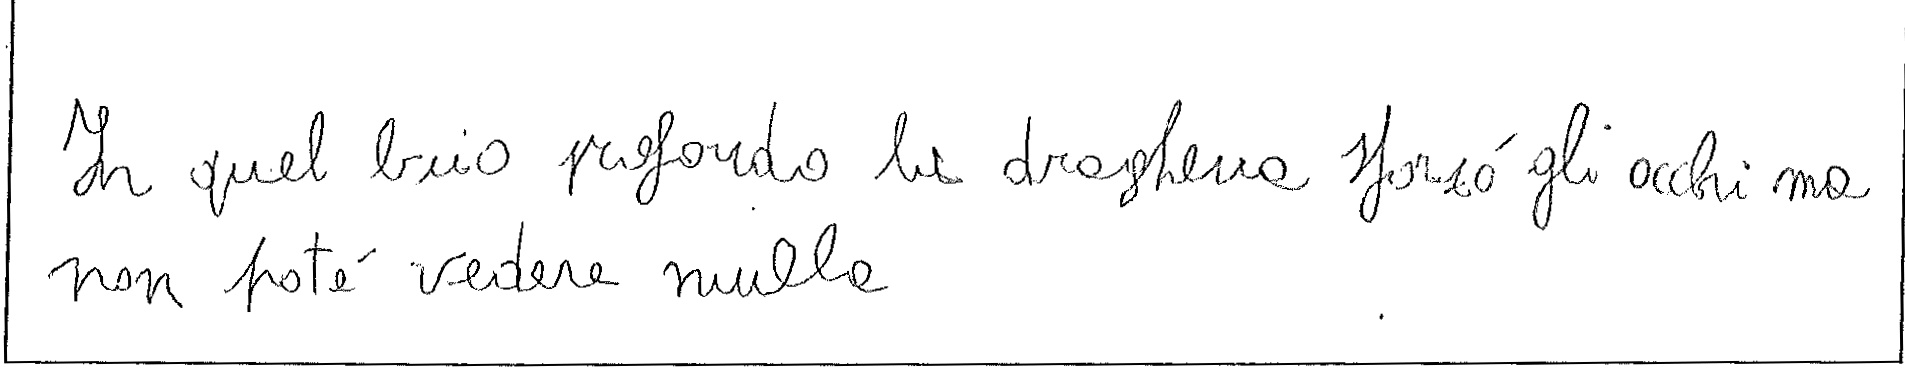 In quel buio profondo la draghena sforzó gli occhi ma
non poté vedere nulla